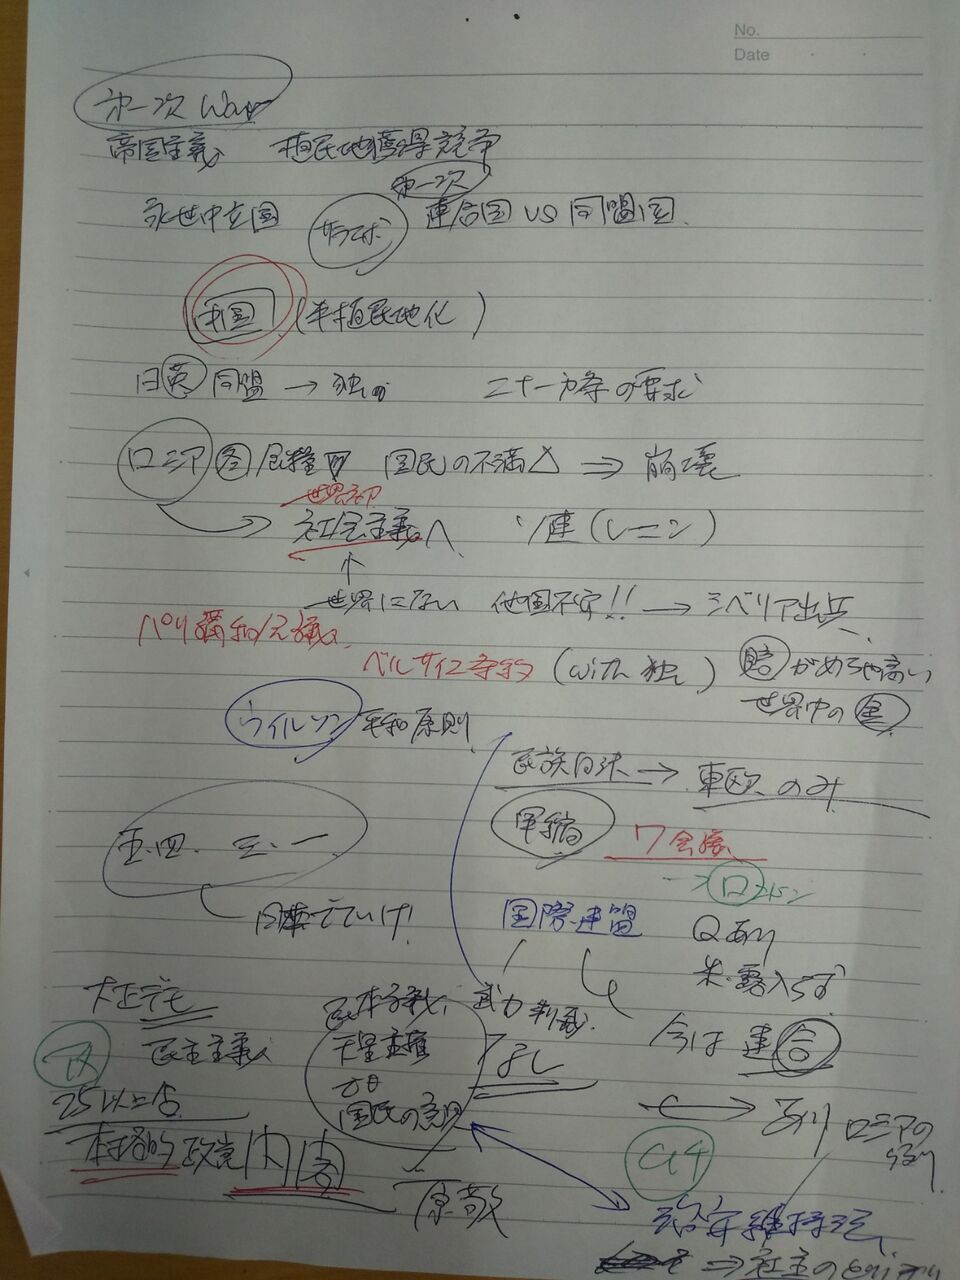 No.
Date
第一次 War
帝国主義 植民地獲得競争
第一次
永世中立国 サラエボ 連合国 VS 同盟国
中国 (半植民地化)
日英同盟 → 独の 二十一カ条の要求
ロシア 食糧 国民の不満 △ ⇒ 崩壊
世界初
社会主義へ ソ連 (レーニン)
↑
世界にない 他国不安!! → シベリア出兵
パリ講和会議
ベルサイユ条約 (with 独) 賠 がめちゃ高い
世界中の
ウイルソン 平和原則
民族自決 → 東欧のみ
軍縮 ワ会議
五・四. 三・一 → ロンドン
日本でていけ! 国際連盟 Qあり
米・露入らず
大正デモ 民本主義 武力制裁
民主主義 天皇主権 なし 今は 連合
政
25以上 国民の意見 ↔ あり ロシアの
本格的 政党 内閣 原敬
治安維持法
⇒ 社主の